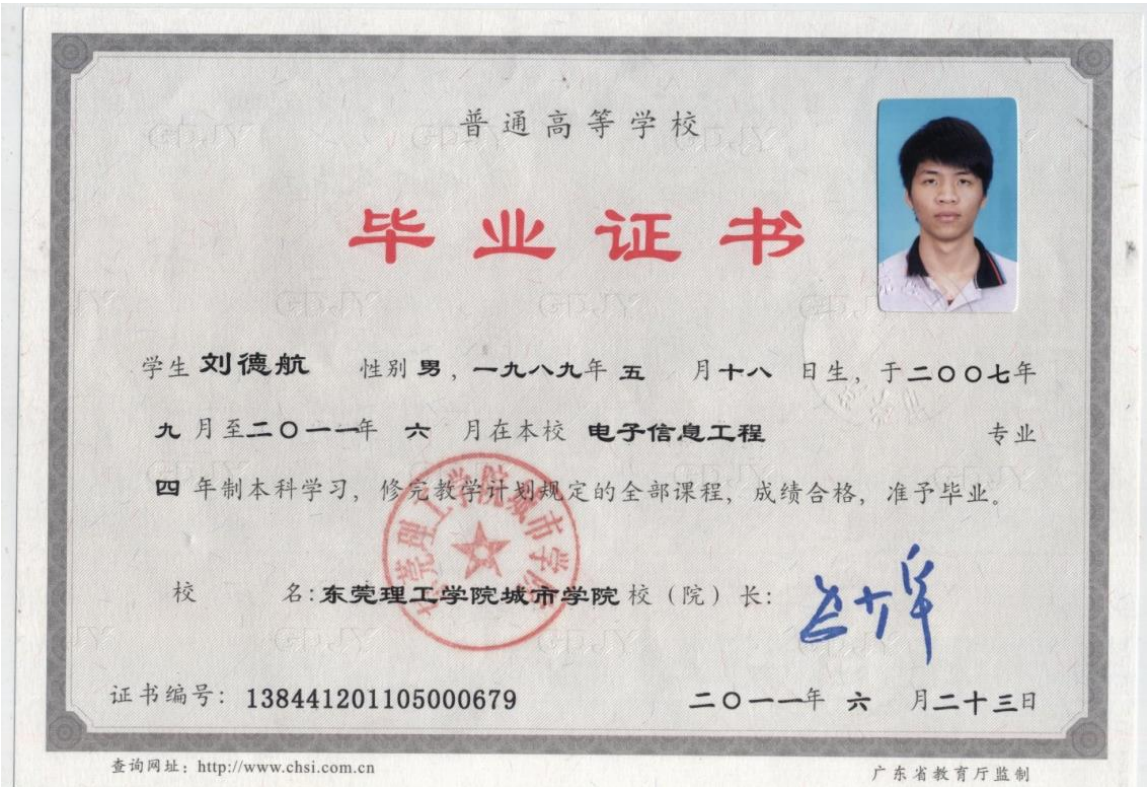 普通高等学校
毕业证书
学生 刘德航 性别 男，一九八九年 五 月十八 日生，于二〇〇七年
九 月至二〇一一年 六 月在本校 电子信息工程 专业
四 年制本科学习，修完教学计划规定的全部课程，成绩合格，准予毕业。
校 名：东莞理工学院城市学院 校（院）长：
东莞理工学院城市学院
证书编号：138441201105000679 二〇一一年 六 月二十三日
查询网址：http://www.chsi.com.cn 广东省教育厅监制
GDJY